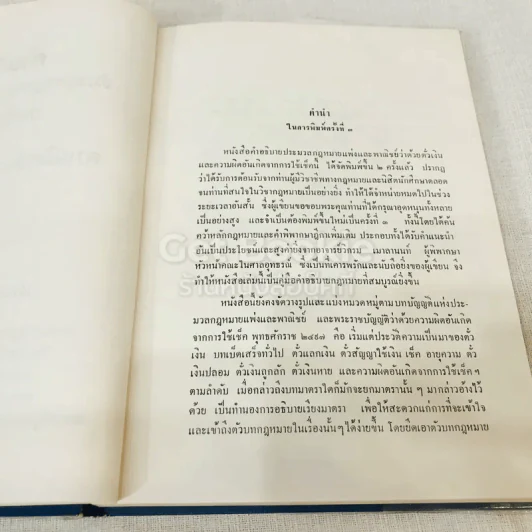 คำนำ
ในการพิมพ์ครั้งที่ ๓
หนังสือคำอธิบายประมวลกฎหมายแพ่งและพาณิชย์ว่าด้วยตั๋วเงิน
และความผิดอันเกิดจากการใช้เช็คนี้ ได้จัดพิมพ์ขึ้น ๒ ครั้งแล้ว ปรากฏ
ว่าได้รับการต้อนรับจากท่านผู้มีวิชาชีพทางกฎหมายและนิสิตนักศึกษาตลอด
จนท่านที่สนใจในวิชากฎหมายเป็นอย่างยิ่ง ทำให้ได้จำหน่ายหมดไปในช่วง
ระยะเวลาอันสั้น ซึ่งผู้เขียนขอขอบพระคุณท่านที่ได้กรุณาอุดหนุนทั้งหลาย
เป็นอย่างสูง และจำเป็นต้องพิมพ์ขึ้นใหม่เป็นครั้งที่ ๓ ทั้งนี้โดยได้ค้น
คว้าหลักกฎหมายและคำพิพากษาฎีกาเพิ่มเติม ประกอบทั้งได้รับคำแนะนำ
อันเป็นประโยชน์และสูงค่ายิ่งจากอาจารย์ มาลานนท์ ผู้พิพากษา
หัวหน้าคณะในศาลอุทธรณ์ ซึ่งเป็นที่เคารพรักและนับถือยิ่งของผู้เขียน จึง
ทำให้หนังสือเล่มนี้เป็นคู่มือคำอธิบายกฎหมายที่สมบูรณ์ยิ่งขึ้น
หนังสือนี้ยังคงจัดวางรูปและแบ่งหมวดหมู่ตามบทบัญญัติแห่งประ-
มวลกฎหมายแพ่งและพาณิชย์ และพระราชบัญญัติว่าด้วยความผิดอันเกิด
จากการใช้เช็ค พุทธศักราช ๒๔๙๗ คือ เริ่มแต่ประวัติความเป็นมาของตั๋ว
เงิน บทเบ็ดเสร็จทั่วไป ตั๋วแลกเงิน ตั๋วสัญญาใช้เงิน เช็ค อายุความ ตั๋ว
เงินปลอม ตั๋วเงินถูกลัก ตั๋วเงินหาย และความผิดอันเกิดจากการใช้เช็ค ๆ
ตามลำดับ เมื่อกล่าวถึงบทมาตราใดก็มักจะยกมาตรานั้น ๆ มากล่าวอ้างไว้
ด้วย เป็นทำนองการอธิบายเรียงมาตรา เพื่อให้สะดวกแก่การที่จะเข้าใจ
และเข้าถึงตัวบทกฎหมายในเรื่องนั้น ๆ ได้ง่ายขึ้น โดยยึดเอาตัวบทกฎหมาย